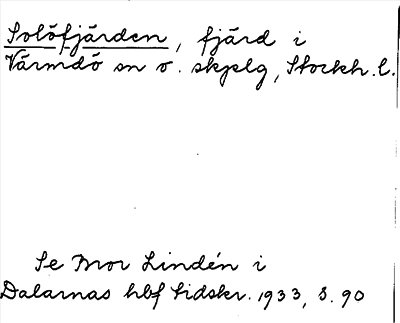 Solöfjärden, fjärd i
Värmdö sn o. skplg, Stockh. l.
Se Bror Lindén i
Dalarnas hbf tidskr. 1933, s. 90